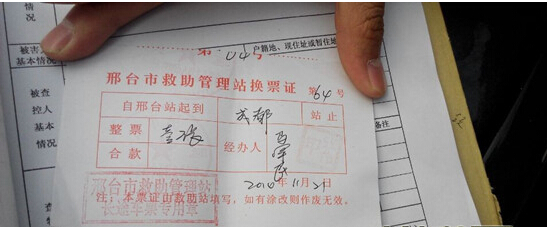 情况
被害
基本情况
户籍地、现住址或暂住地
第 04 号
邢台市救助管理站换票证 第64号
被查控人基本情况
自邢台站起到 成都 站止
整票 壹张 经办人
合款
备注
2010年11月21日
邢台市救助管理站
长途车票专用章
注:本票证由救助站填写,如有涂改则作废无效。